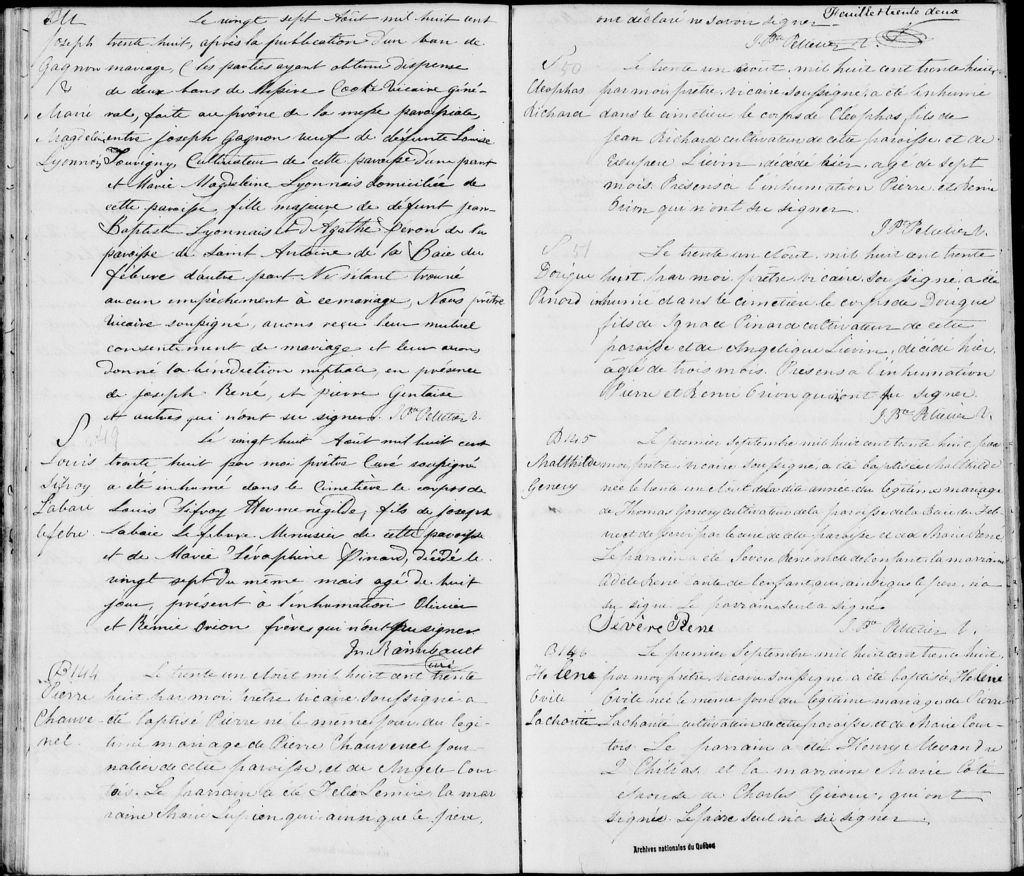 M
Joseph
Gagnon
&
Marie
Magdeleine
Lyonnois
Le vingt sept Août mil huit cent
trente huit, après la publication d'un ban de
mariage, (les parties ayant obtenu dispense
de deux bans de Messire Cooke Vicaire géné-
ral, faite au prône de la messe paroissiale
entre Joseph Gagnon veuf de défunte Louise
Jouvigny, Cultivateur de cette paroisse d'une part
et Marie Magdeleine Lyonnais domiciliée de
cette paroisse, fille majeure de defunt Jean
Baptist Lyonnais et d'Agathe Peron de la
paroisse de Saint Antoine de la Baie du
febvre d'autre part. Ne s'étant trouvé
aucun empêchement à ce mariage, Nous prêtre
Vicaire soussigné, avons reçu leur mutuel
consentement de mariage et leur avons
donné la bénédiction nuptiale, en présence
de Joseph René, et pierre Gentaise
et autres qui n'ont su signer. J. Bte Pelletier V.
S 49
Louis
Sifroy
Labaie
lefebre
Le vingt huit Août mil huit cent
trente huit par moi prêtre Curé soussigné
a été inhumé dans le Cimetière le corps de
Louis Sifroy Hermenegilde, fils de Joseph
Labaie Lefebvre Menusier de cette paroisse
et de Marie Séraphine Pinard, décédé le
vingt sept du même mois agé de huit
jour, présent à l'inhumation Olivier
et Remie Orion frères qui n'ont pu signer
Curé
B 144
Pierre
Chauve
nel
Le trente un Aout mil huit cent trente
huit par moi Prêtre vicaire soussigné a
été baptisé Pierre né le même jour du légi-
time mariage de Pierre Chauvenel jour-
nalier de cette paroisse, et de Angele Cour-
tois. Le parrain a été Felix Lemire la mar
raine Marie Lupien qui ainsi que le père,
Feuillet trente deux
ont déclaré ne savoir signer
J. Bte Pelletier V.
S 50
Cleophas
Richard
Le trente un août, mil huit cent trente huit,
par moi prêtre, vicaire soussigné, a été inhumé
dans le cimetière le corps de Cléophas, fils de
Jean Richard cultivateur de cette paroisse et de
Lievin, décédé hier, agé de sept
mois. Présens à l'inhumation Pierre et Remie
Orion qui n'ont su signer.
J. Bte Pelletier V.
S 51
Dougue
Pinard
Le trente un Aout, mil huit cent trente
huit, par moi, prêtre, vicaire, soussigné, a été
inhumé dans le cimetière le corps de Dougue
fils de Ignace Pinard cultivateur de cette
paroisse et de Angelique Lievin, décédé hier,
agé de trois mois. Présens a l'inhumation
Pierre et Remi Orion qui n'ont su signer.
J. Bte Pelletier V.
B 145
Malthilde
Le premier Septembre mil huit cent trente huit, par
moi, prêtre, vicaire soussigné, a été baptisée Malthilde
née le trente un Aout de la dite année du légitime mariage
de Thomas cultivateur de la paroisse de la Baie du Feb-
vre, et de Marie René
Le parrain a été Sévère René oncle de l'enfant, la marraine
Adele René tante de l'enfant qui, ainsi que le père, n'a
su signé. Le parrain seul a signé.
Sévère Rene
J. Bte Pelletier V.
B 146
Helène
Lachanté
Le premier Septembre mil huit cent trente huit,
par moi, prêtre, vicaire soussigné a été baptisée, Helène
née le même jour du légitime mariage de Pierre
Lachanté cultivateur de cette paroisse et de Marie Cour-
tois. Le parrain a été Henry Alexandre
et la marraine Marie Côté
épouse de Charles Giroux, qui ont
signés. Le père seul n'a su signer
Archives nationales du Québec